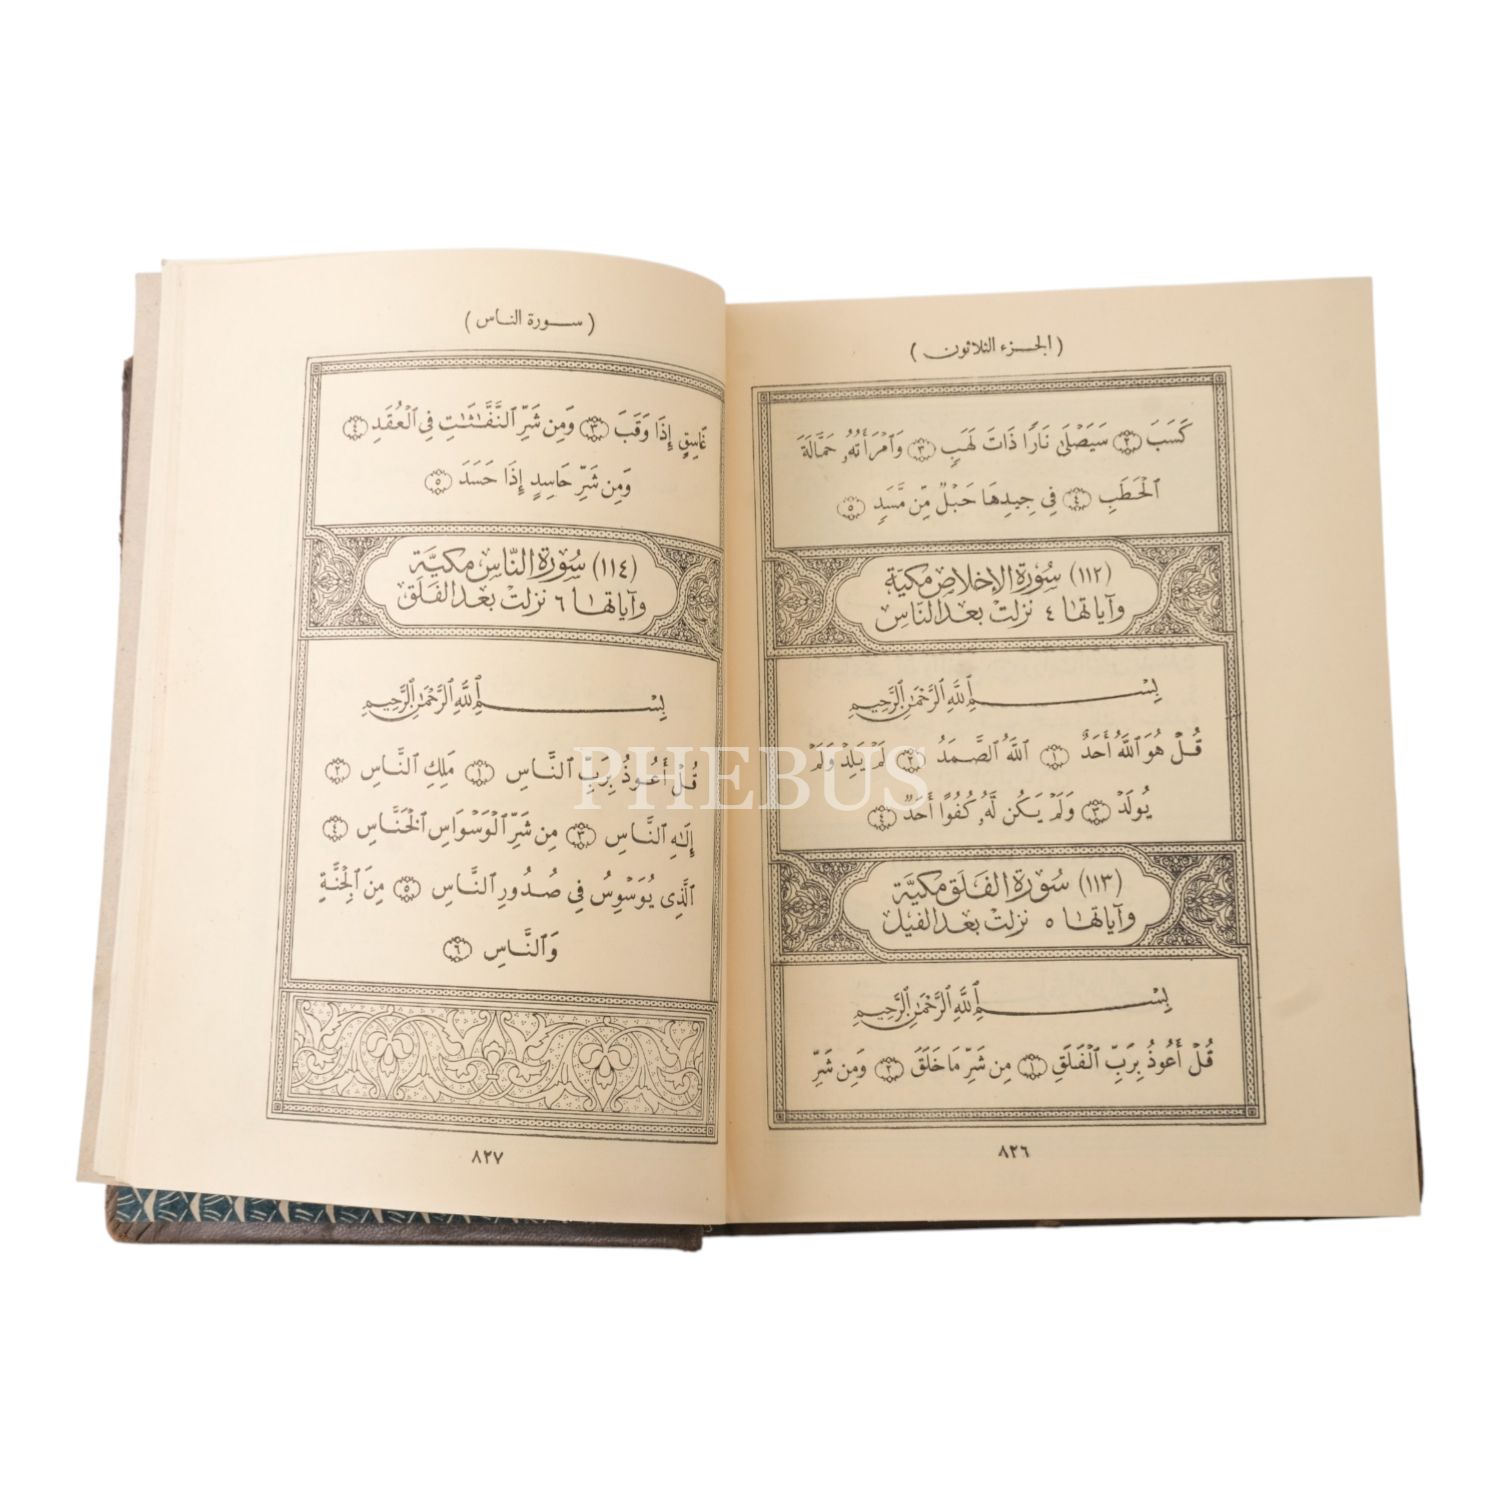 ( الجزء الثلاثون )
كَسَبَ ٢ سَيَصْلَىٰ نَارًا ذَاتَ لَهَبٍ ٣ وَٱمْرَأَتُهُۥ حَمَّالَةَ
ٱلْحَطَبِ ٤ فِى جِيدِهَا حَبْلٌ مِّن مَّسَدٍ ٥
(١١٢) سُورَة الإخلاص مكيّة
وآياتها ٤ نزلت بعد النّاس
بِسْمِ ٱللَّهِ ٱلرَّحْمَٰنِ ٱلرَّحِيمِ
قُلْ هُوَ ٱللَّهُ أَحَدٌ ١ ٱللَّهُ ٱلصَّمَدُ ٢ لَمْ يَلِدْ وَلَمْ
يُولَدْ ٣ وَلَمْ يَكُن لَّهُۥ كُفُوًا أَحَدٌ ٤
(١١٣) سُورَة الفَلَق مكيّة
وآياتها ٥ نزلت بعد الفيل
بِسْمِ ٱللَّهِ ٱلرَّحْمَٰنِ ٱلرَّحِيمِ
قُلْ أَعُوذُ بِرَبِّ ٱلْفَلَقِ ١ مِن شَرِّ مَا خَلَقَ ٢ وَمِن شَرِّ
٨٢٦
( سورة الناس )
غَاسِقٍ إِذَا وَقَبَ ٣ وَمِن شَرِّ ٱلنَّفَّٰثَٰتِ فِى ٱلْعُقَدِ ٤
وَمِن شَرِّ حَاسِدٍ إِذَا حَسَدَ ٥
(١١٤) سُورَة النّاس مكيّة
وآياتها ٦ نزلت بعد الفَلَق
بِسْمِ ٱللَّهِ ٱلرَّحْمَٰنِ ٱلرَّحِيمِ
قُلْ أَعُوذُ بِرَبِّ ٱلنَّاسِ ١ مَلِكِ ٱلنَّاسِ ٢
إِلَٰهِ ٱلنَّاسِ ٣ مِن شَرِّ ٱلْوَسْوَاسِ ٱلْخَنَّاسِ ٤
ٱلَّذِى يُوَسْوِسُ فِى صُدُورِ ٱلنَّاسِ ٥ مِنَ ٱلْجِنَّةِ
وَٱلنَّاسِ ٦
٨٢٧
PHEBUS